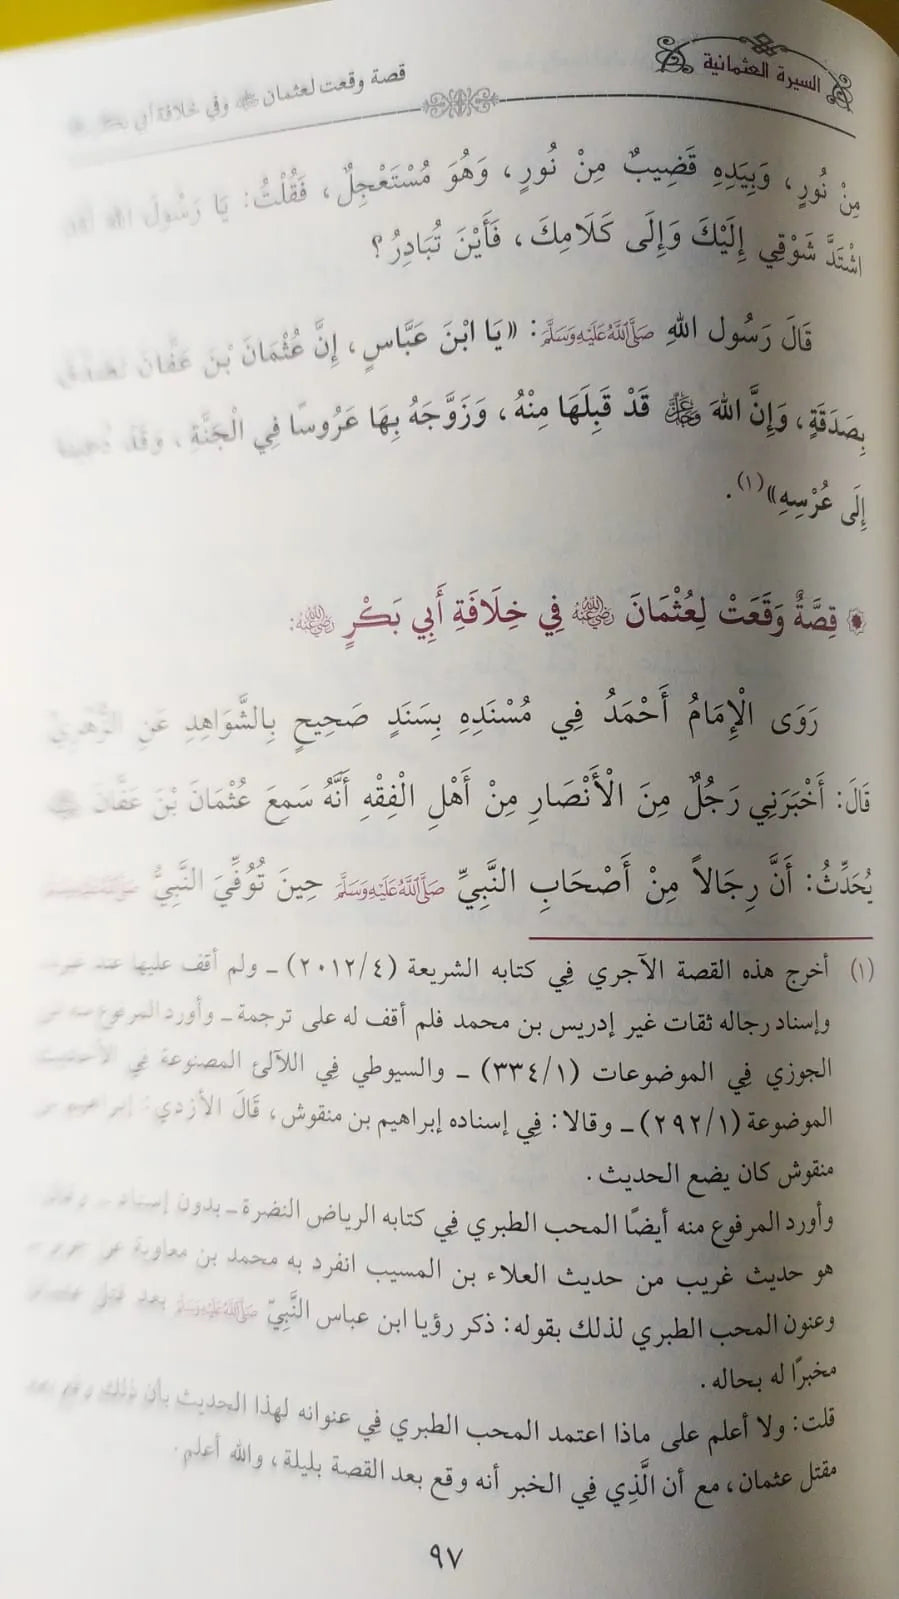 السيرة العثمانية
قصة وقعت لعثمان ﵁ وفي خلافة أبي بكر
مِنْ نُورٍ، وَبِيَدِهِ قَضِيبٌ مِنْ نُورٍ، وَهُوَ مُسْتَعْجِلٌ، فَقُلْتُ: يَا رَسُولَ اللهِ
اشْتَدَّ شَوْقِي إِلَيْكَ وَإِلَى كَلَامِكَ، فَأَيْنَ تُبَادِرُ؟
قَالَ رَسُول اللهِ صَلَّى اللَّهُ عَلَيْهِ وَسَلَّمَ: «يَا ابْنَ عَبَّاسٍ، إِنَّ عُثْمَانَ بْنَ عَفَّانَ تَصَدَّقَ
بِصَدَقَةٍ، وَإِنَّ اللهَ عَزَّ وَجَلَّ قَدْ قَبِلَهَا مِنْهُ، وَزَوَّجَهُ بِهَا عَرُوسًا فِي الْجَنَّةِ، وَقَدْ دُعِينَا
إِلَى عُرْسِهِ»(١).
قِصَّةٌ وَقَعَتْ لِعُثْمَانَ ﵁ فِي خِلَافَةِ أَبِي بَكْرٍ ﵁:
رَوَى الْإِمَامُ أَحْمَدُ فِي مُسْنَدِهِ بِسَنَدٍ صَحِيحٍ بِالشَّوَاهِدِ عَنِ الزُّهْرِيِّ
قَالَ: أَخْبَرَنِي رَجُلٌ مِنَ الْأَنْصَارِ مِنْ أَهْلِ الْفِقْهِ أَنَّهُ سَمِعَ عُثْمَانَ بْنَ عَفَّانَ ﵁
يُحَدِّثُ: أَنَّ رِجَالاً مِنْ أَصْحَابِ النَّبِيِّ صَلَّى اللَّهُ عَلَيْهِ وَسَلَّمَ حِينَ تُوُفِّيَ النَّبِيُّ صَلَّى اللَّهُ عَلَيْهِ وَسَلَّمَ
(١) أخرج هذه القصة الآجري فِي كتابه الشريعة (٢٠١٢/٤) ـ ولم أقف عليها عند غيره
وإسناد رجاله ثقات غير إدريس بن محمد فلم أقف له على ترجمة ـ وأورد المرفوع منه
الجوزي فِي الموضوعات (٣٣٤/١) ـ والسيوطي فِي اللآلئ المصنوعة فِي الأحاديث
الموضوعة (٢٩٢/١) ـ وقالا: فِي إسناده إبراهيم بن منقوش، قَالَ الأزدي: إبراهيم بن
منقوش كان يضع الحديث.
وأورد المرفوع منه أيضًا المحب الطبري فِي كتابه الرياض النضرة ـ بدون إسناد ـ وقال
هو حديث غريب من حديث العلاء بن المسيب انفرد به محمد بن معاوية عن
وعنون المحب الطبري لذلك بقوله: ذكر رؤيا ابن عباس النَّبِيّ صَلَّى اللَّهُ عَلَيْهِ وَسَلَّمَ بعد قتل عثمان
مخبرًا له بحاله.
قلت: ولا أعلم على ماذا اعتمد المحب الطبري فِي عنوانه لهذا الحديث بأن ذلك وقع بعد
مقتل عثمان، مع أن الَّذِي فِي الخبر أنه وقع بعد القصة بليلة، والله أعلم.
٩٧